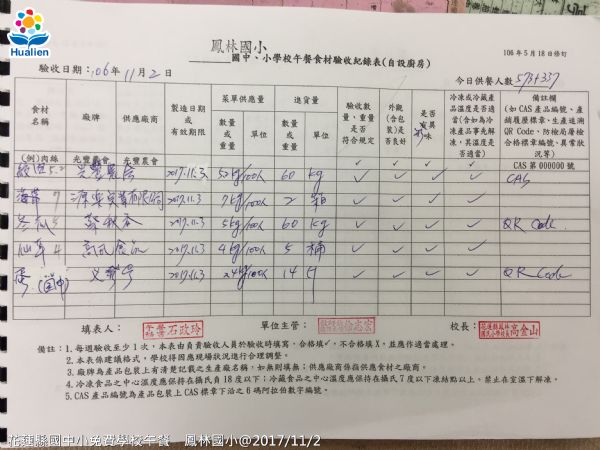 Hualien
鳳林國小
國中、小學校午餐食材驗收紀錄表(自設廚房)
106年5月18日修訂
驗收日期：106年11月2日
今日供餐人數573+337
食材名稱
廠牌
供應廠商
製造日期或有效期限
菜單供應量
數量或重量
單位
進貨量
數量或重量
單位
驗收數量、重量是否符合規定
外觀(含包裝)是否良好
是否有異味
冷凍或冷藏產品溫度是否適當(含如為冷凍產品事先解凍，其溫度是否適當)
備註欄(如 CAS 產品編號、產銷履歷標章、生產追溯 QR Code、防檢局屠檢合格標章編號、異常狀況等)
(例)肉絲 光豐農會 光豐農會 ✓ ✓ ✓ ✓ CAS 第 000000 號
2017.11.3 60 kg ✓ ✓ ✓ ✓ CAS
2017.11.3 7kg/100人 2 箱 ✓ ✓ ✓ ✓
冬瓜5 2017.11.3 5kg/100人 60 kg ✓ ✓ ✓ ✓ QR Code
仙草4 2017.11.3 4kg/100人 5 桶 ✓ ✓ ✓ ✓
2017.11.3 14 ✓ ✓ ✓ ✓ QR Code
填表人：
石政玲
單位主管：
校長：
花蓮縣鳳林國民小學校長
高金山
備註：1.每週驗收至少 1 次，本表由負責驗收人員於驗收時填寫，合格填✓，不合格填 X，並應作適當處理。
2.本表係建議格式，學校得因應現場狀況進行合理調整。
3.廠牌為產品包裝上有清楚記載之生產廠名稱，如無則填無；供應廠商係指供應食材之廠商。
4.冷凍食品之中心溫度應保持在攝氏負 18 度以下；冷藏食品之中心溫度應保持在攝氏 7 度以下凍結點以上，禁止在室溫下解凍。
5.CAS 產品編號為產品包裝上 CAS 標章下沿之 6 碼阿拉伯數字編號。
花蓮縣國中小免費學校午餐 鳳林國小@2017/11/2